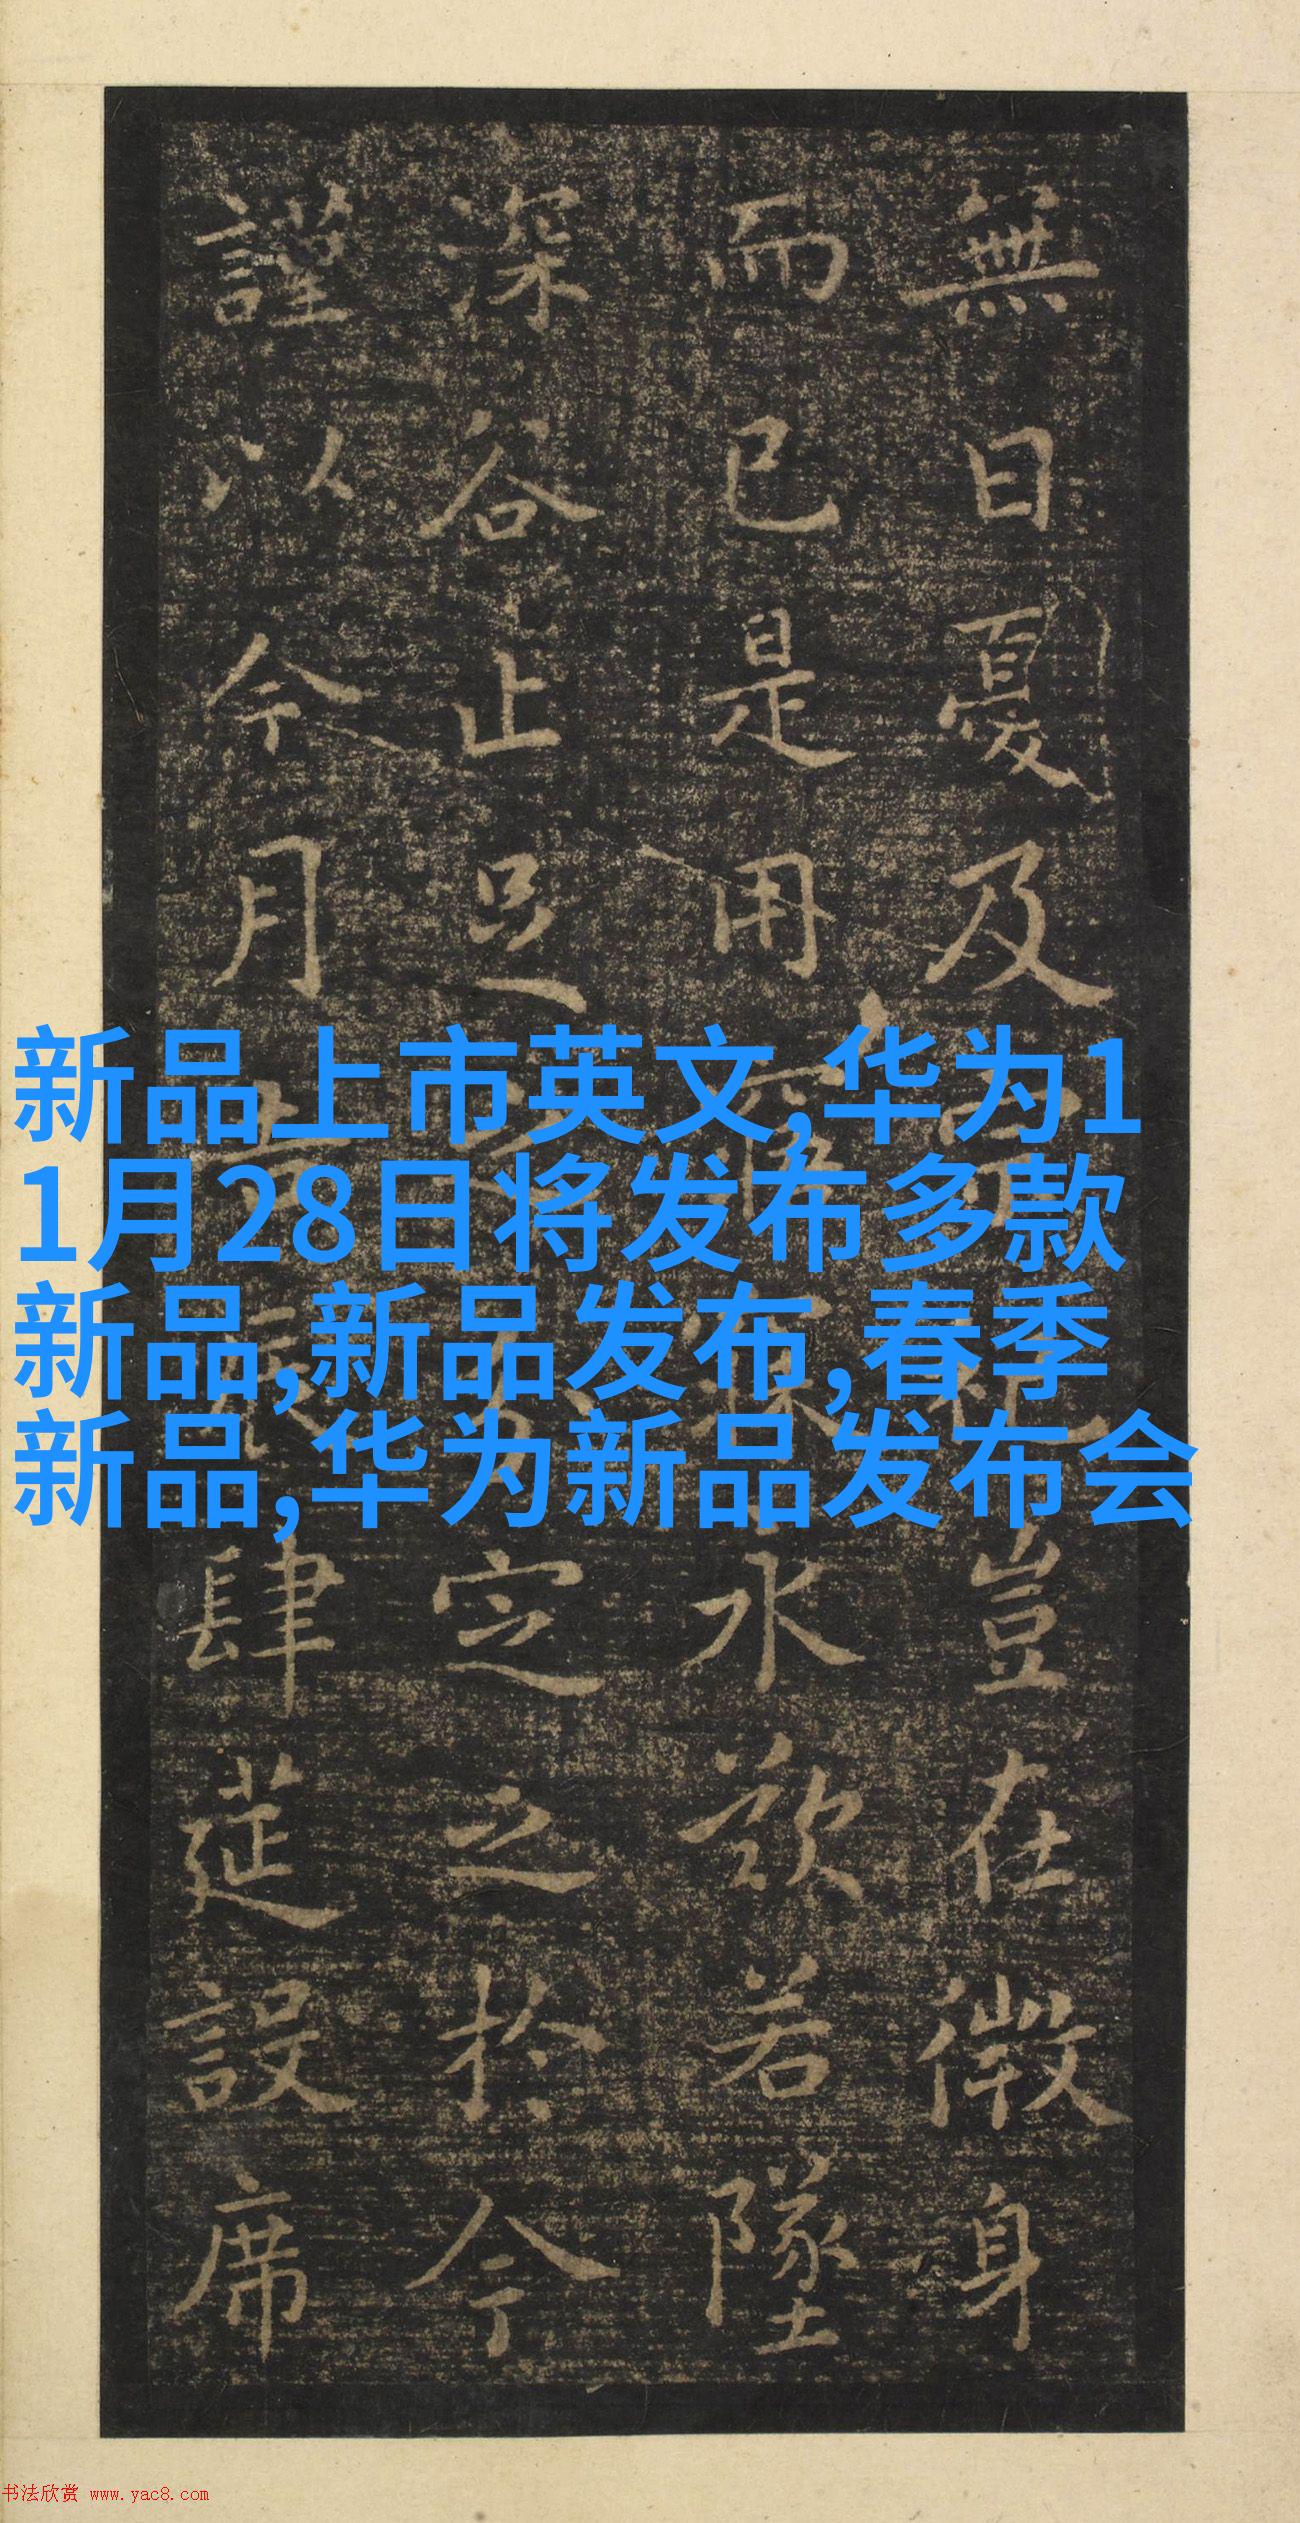 無日憂及豈在微身
而已是用永歎若墜
深谷止足定之於今
謹以今月肆筵設席
新品上市英文,华为1
1月28日将发布多款
新品,新品发布,春季
新品,华为新品发布会
书法欣赏 www.yac8.com